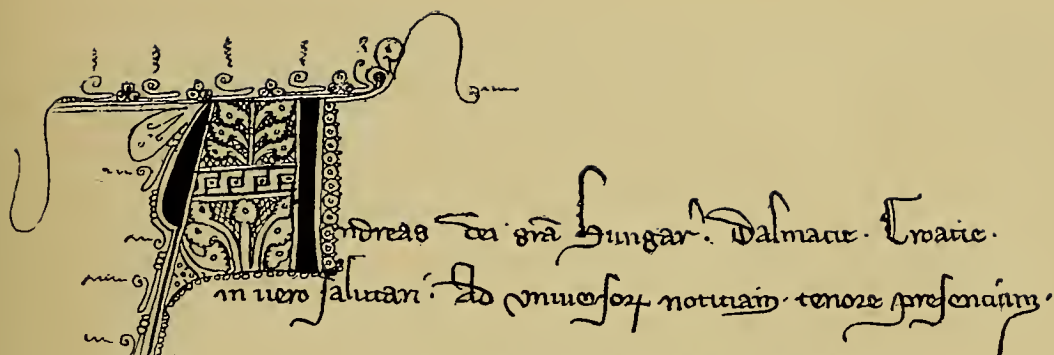 Andreas dei gra Hungar. Dalmacie. Croacie.
in uero salutari. Ad vniuersorꝝ noticiam. tenore presencium.